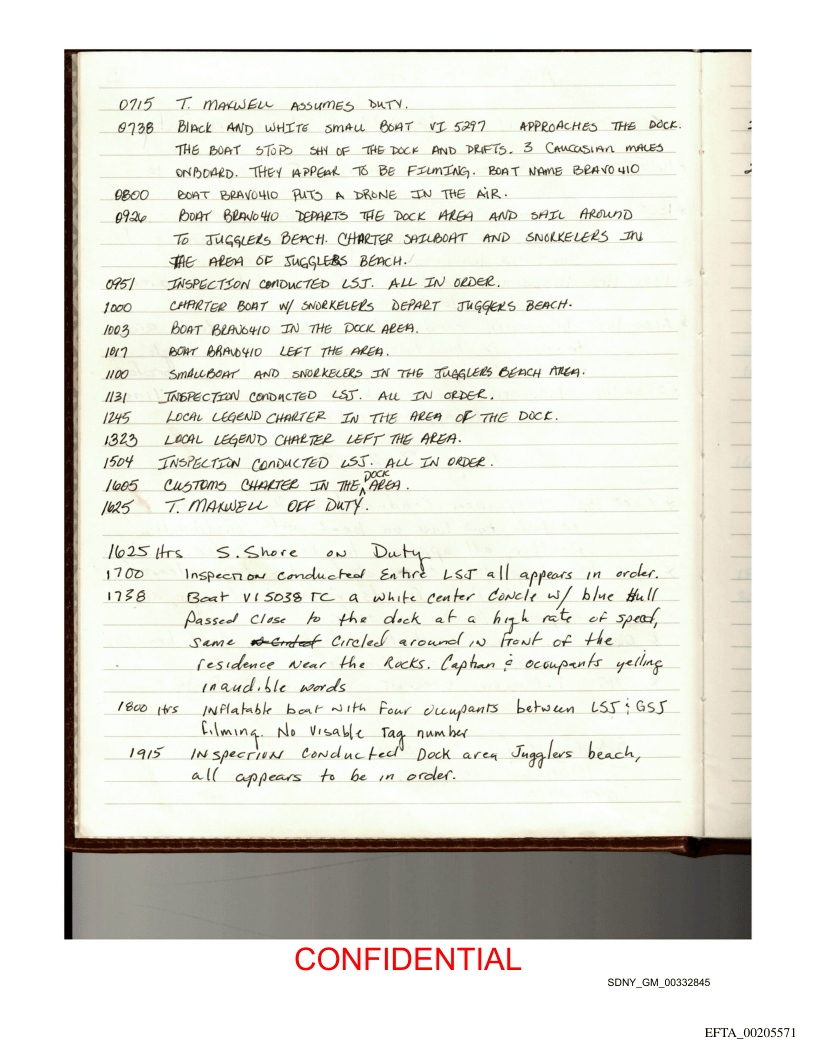 0715 T. MAXWELL ASSUMES DUTY.
0738 BLACK AND WHITE SMALL BOAT VI 5297 APPROACHES THE DOCK.
THE BOAT STOPS SHY OF THE DOCK AND DRIFTS. 3 CAUCASIAN MALES
ONBOARD. THEY APPEAR TO BE FILMING. BOAT NAME BRAVO410
0800 BOAT BRAVO410 PUTS A DRONE IN THE AIR.
0926 BOAT BRAVO410 DEPARTS THE DOCK AREA AND SAIL AROUND
TO JUGGLERS BEACH. CHARTER SAILBOAT AND SNORKELERS IN
THE AREA OF JUGGLERS BEACH.
0951 INSPECTION CONDUCTED LSJ. ALL IN ORDER.
1000 CHARTER BOAT W/ SNORKELERS DEPART JUGGERS BEACH.
1003 BOAT BRAVO410 IN THE DOCK AREA.
1017 BOAT BRAVO410 LEFT THE AREA.
1100 SMALLBOAT AND SNORKELERS IN THE JUGGLERS BEACH AREA.
1131 INSPECTION CONDUCTED LSJ. ALL IN ORDER.
1245 LOCAL LEGEND CHARTER IN THE AREA OF THE DOCK.
1323 LOCAL LEGEND CHARTER LEFT THE AREA.
1504 INSPECTION CONDUCTED LSJ. ALL IN ORDER.
1605 CUSTOMS CHARTER IN THE DOCK AREA.
1625 T. MAXWELL OFF DUTY.
1625 Hrs S. Shore on Duty
1700 Inspection conducted Entire LSJ all appears in order.
1738 Boat VI 5038 TC a white center Concle w/ blue Hull
passed close to the dock at a high rate of speed,
same Circled around in front of the
residence near the Rocks. Captian & ocoupants yelling
inaudible words
1800 Hrs Inflatable boat with four occupants between LSJ & GSJ
filming. No Visable Tag number
1915 Inspection Conducted Dock area Jugglers beach,
all appears to be in order.
CONFIDENTIAL
SDNY_GM_00332845
EFTA_00205571